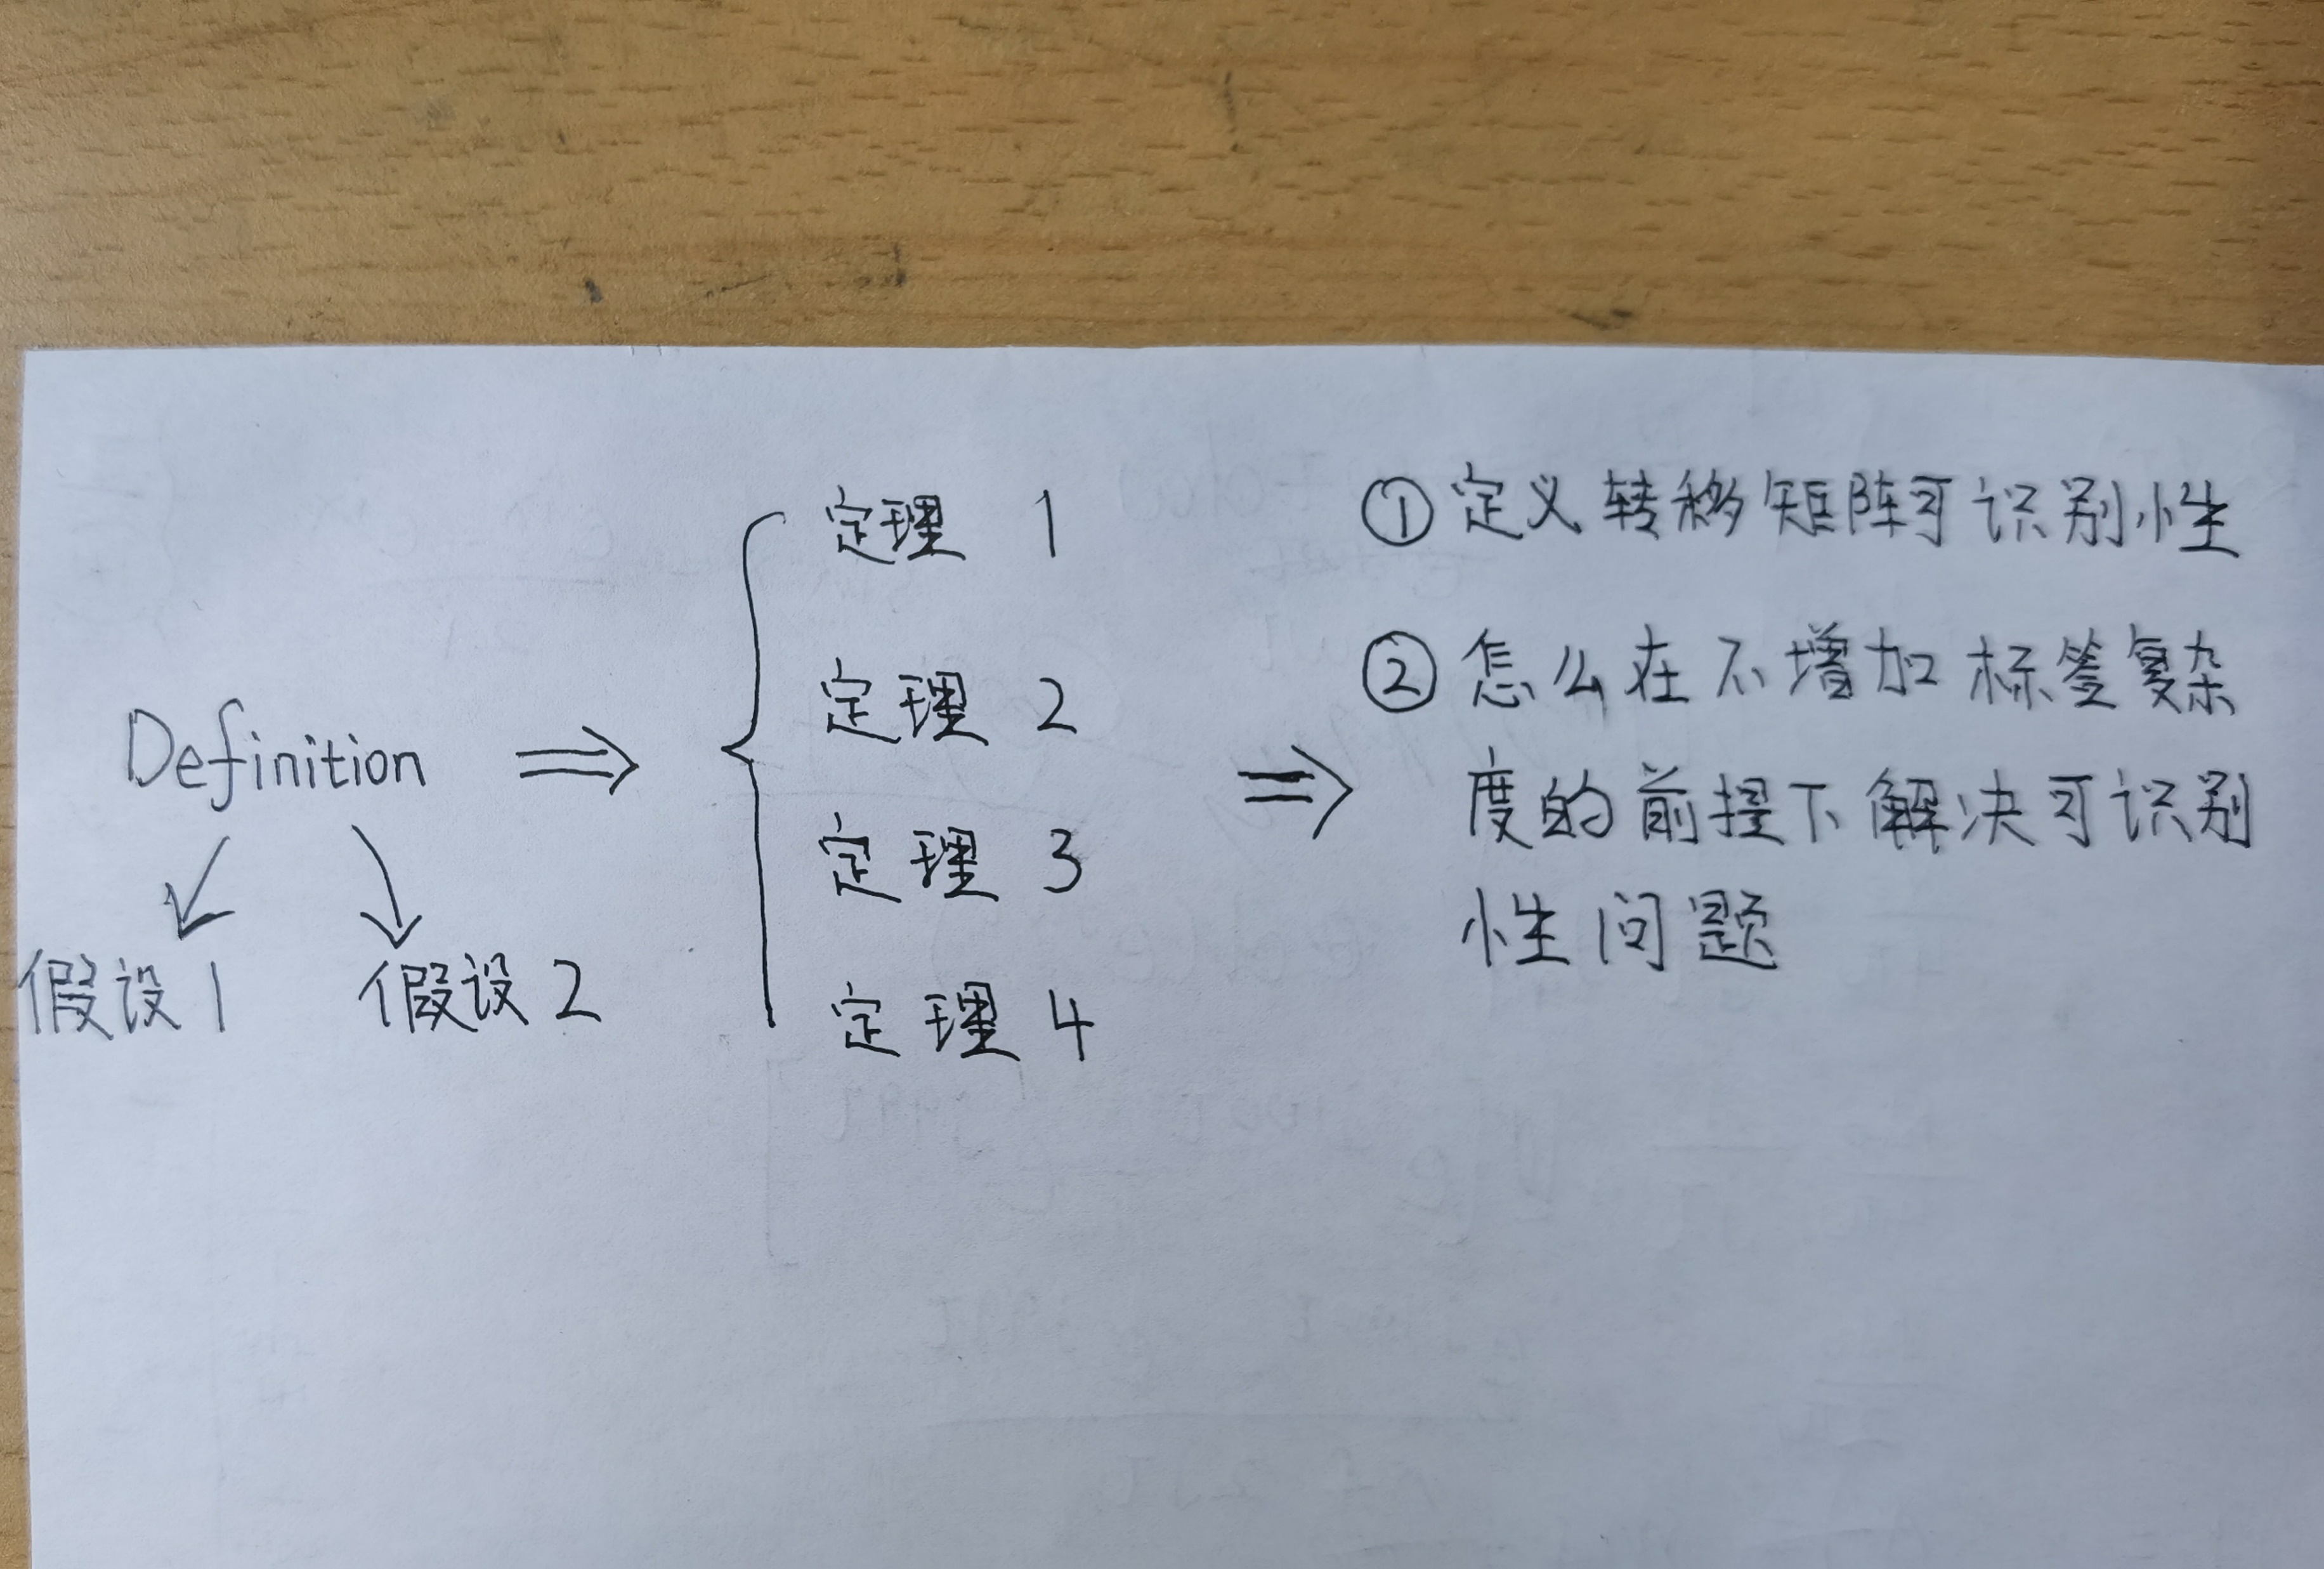 Definition
假设1
假设2
定理 1
定理 2
定理 3
定理 4
① 定义转移矩阵可识别性
② 怎么在不增加标签复杂
度的前提下解决可识别
性问题